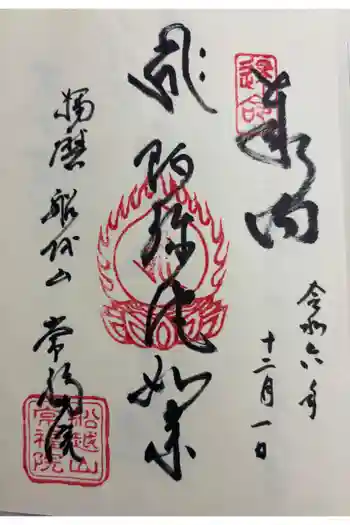 奉内
延命
令和六年
十二月一日
阿弥陀如来
播磨 船越山
常福院
船越山
常福院